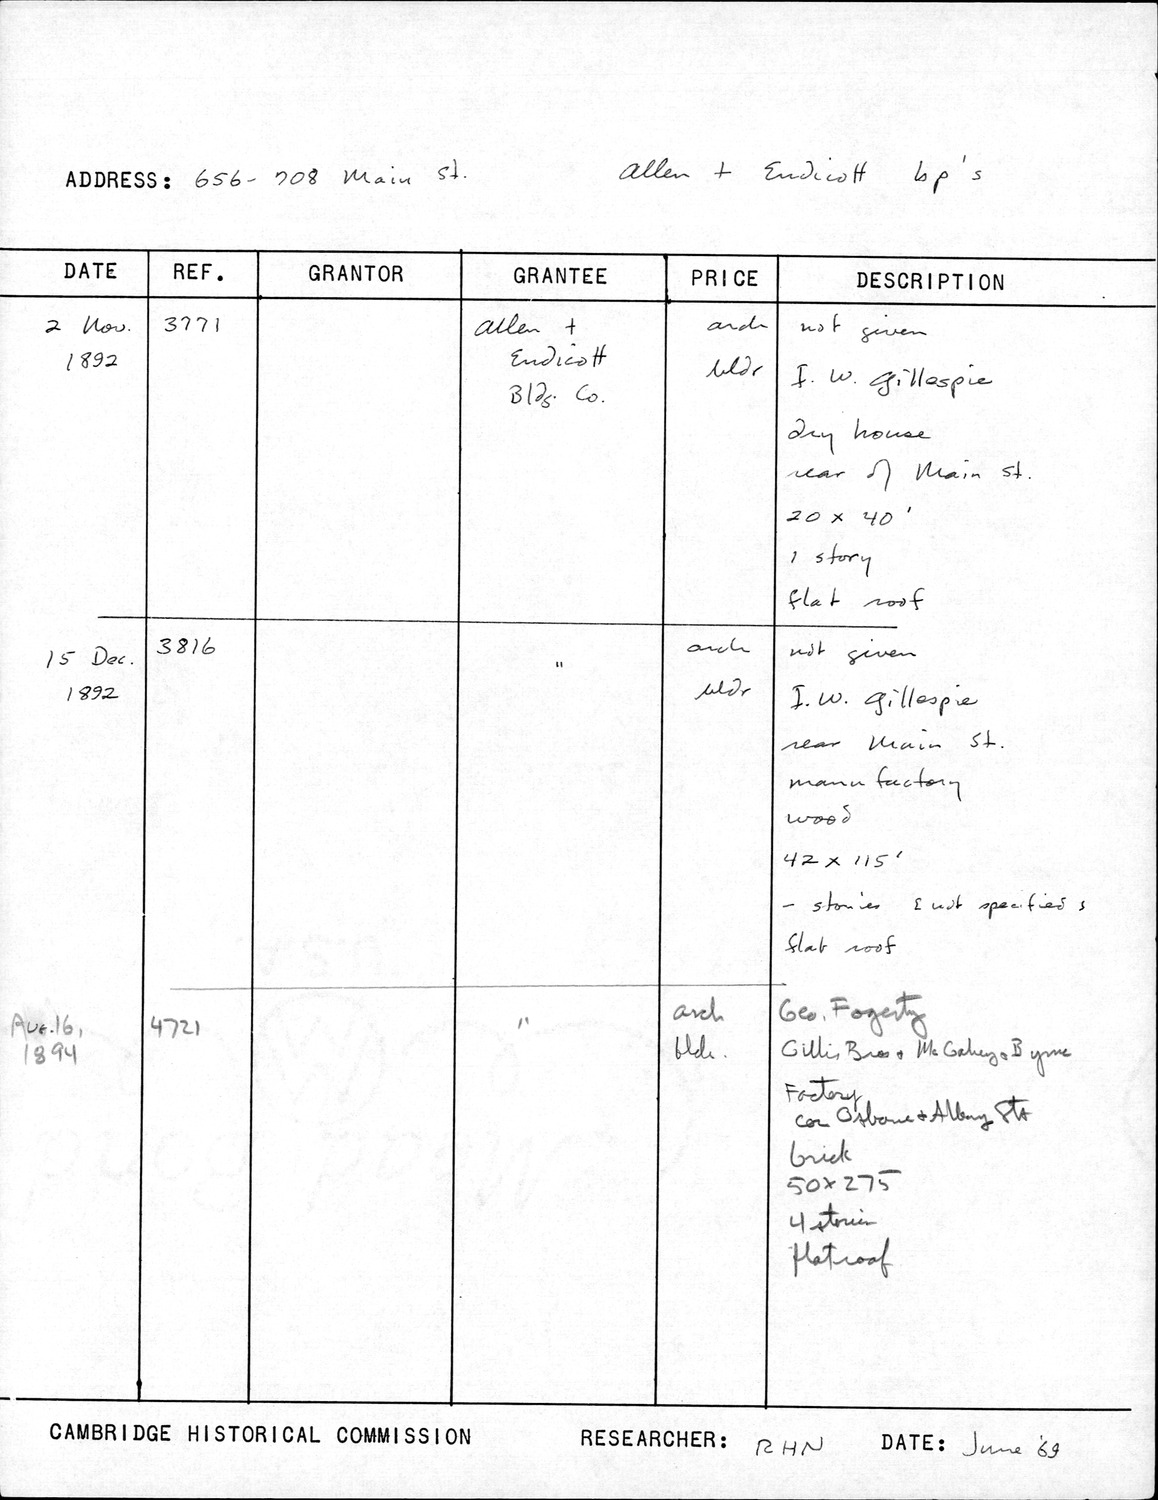 ADDRESS: 656-708 Main St. Allen + Endicott bp's
DATE REF. GRANTOR GRANTEE PRICE DESCRIPTION
2 Nov. 1892 3771 Allen + Endicott Bldg. Co. arch not given
bldr I. W. Gillespie
dry house
rear of Main St.
20 x 40 '
1 story
flat roof
15 Dec. 1892 3816 " arch not given
bldr I. W. Gillespie
rear Main St.
manufactory
wood
42 x 115'
- stories [not specified]
flat roof
Aug. 16, 1894 4721 " arch Geo. Fogerty
bldr. Gillis Bros + McGahey & Byrne
Factory
cor Osborne + Albany Sts
brick
50 x 275
4 stories
flat roof
CAMBRIDGE HISTORICAL COMMISSION RESEARCHER: RHN DATE: June '69